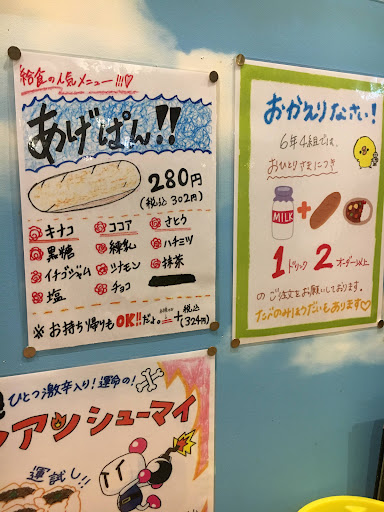 給食の人気メニュー!!!♡
あげぱん!!
280円
(税込 302円)
キナコ ココア さとう
黒糖 練乳 ハチミツ
イチゴジャム シナモン 抹茶
塩 チョコ
※お持ち帰りもOK!!だよ。
+税込
(324円)
おかえりなさい!
6年4組では、
おひとりさまにつき
MILK
+
1ドリンク 2オーダー以上
のご注文をお願いしております。
たべのみほうだいもあります♡
ひとつ激辛入り!運命の!
シアンシューマイ
運試し!!